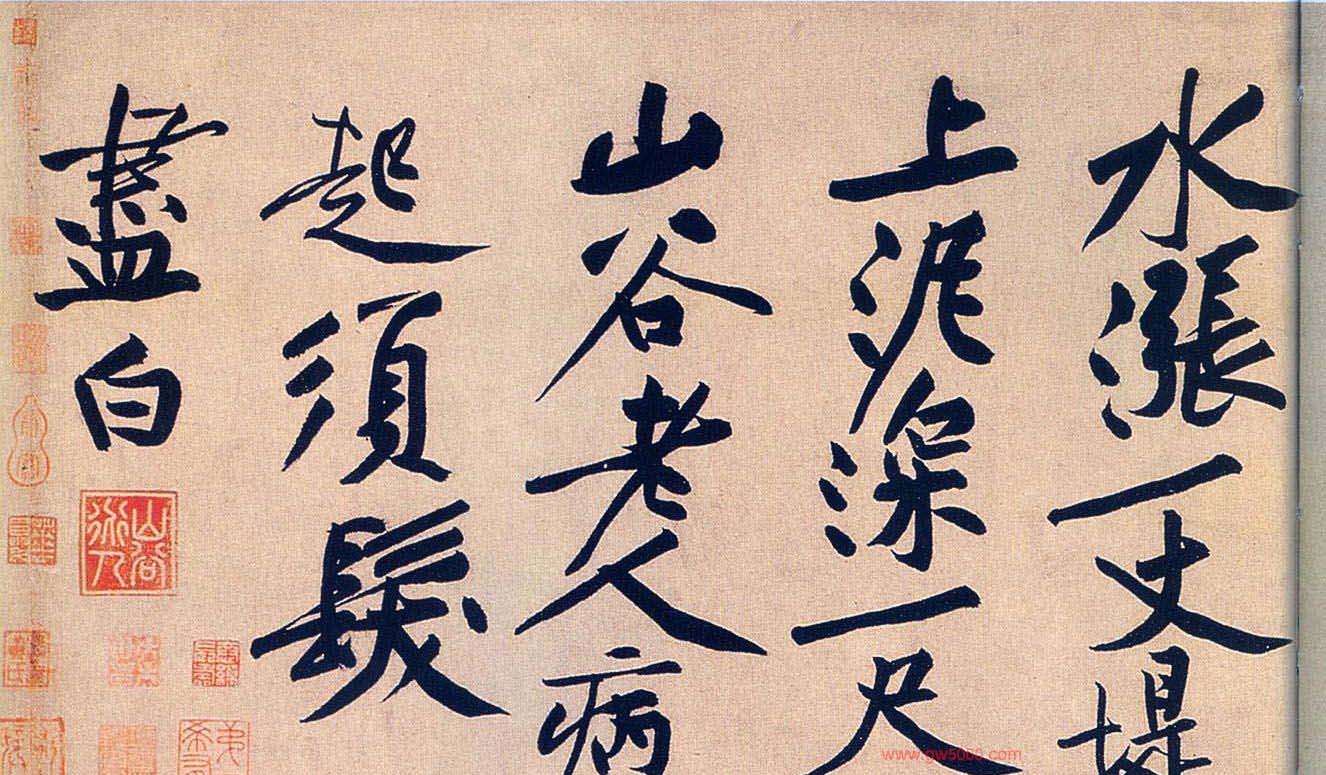 水漲一丈堤
上泥深一尺
山谷老人病
起須髮
盡白
山谷道人
www.gw5000.com